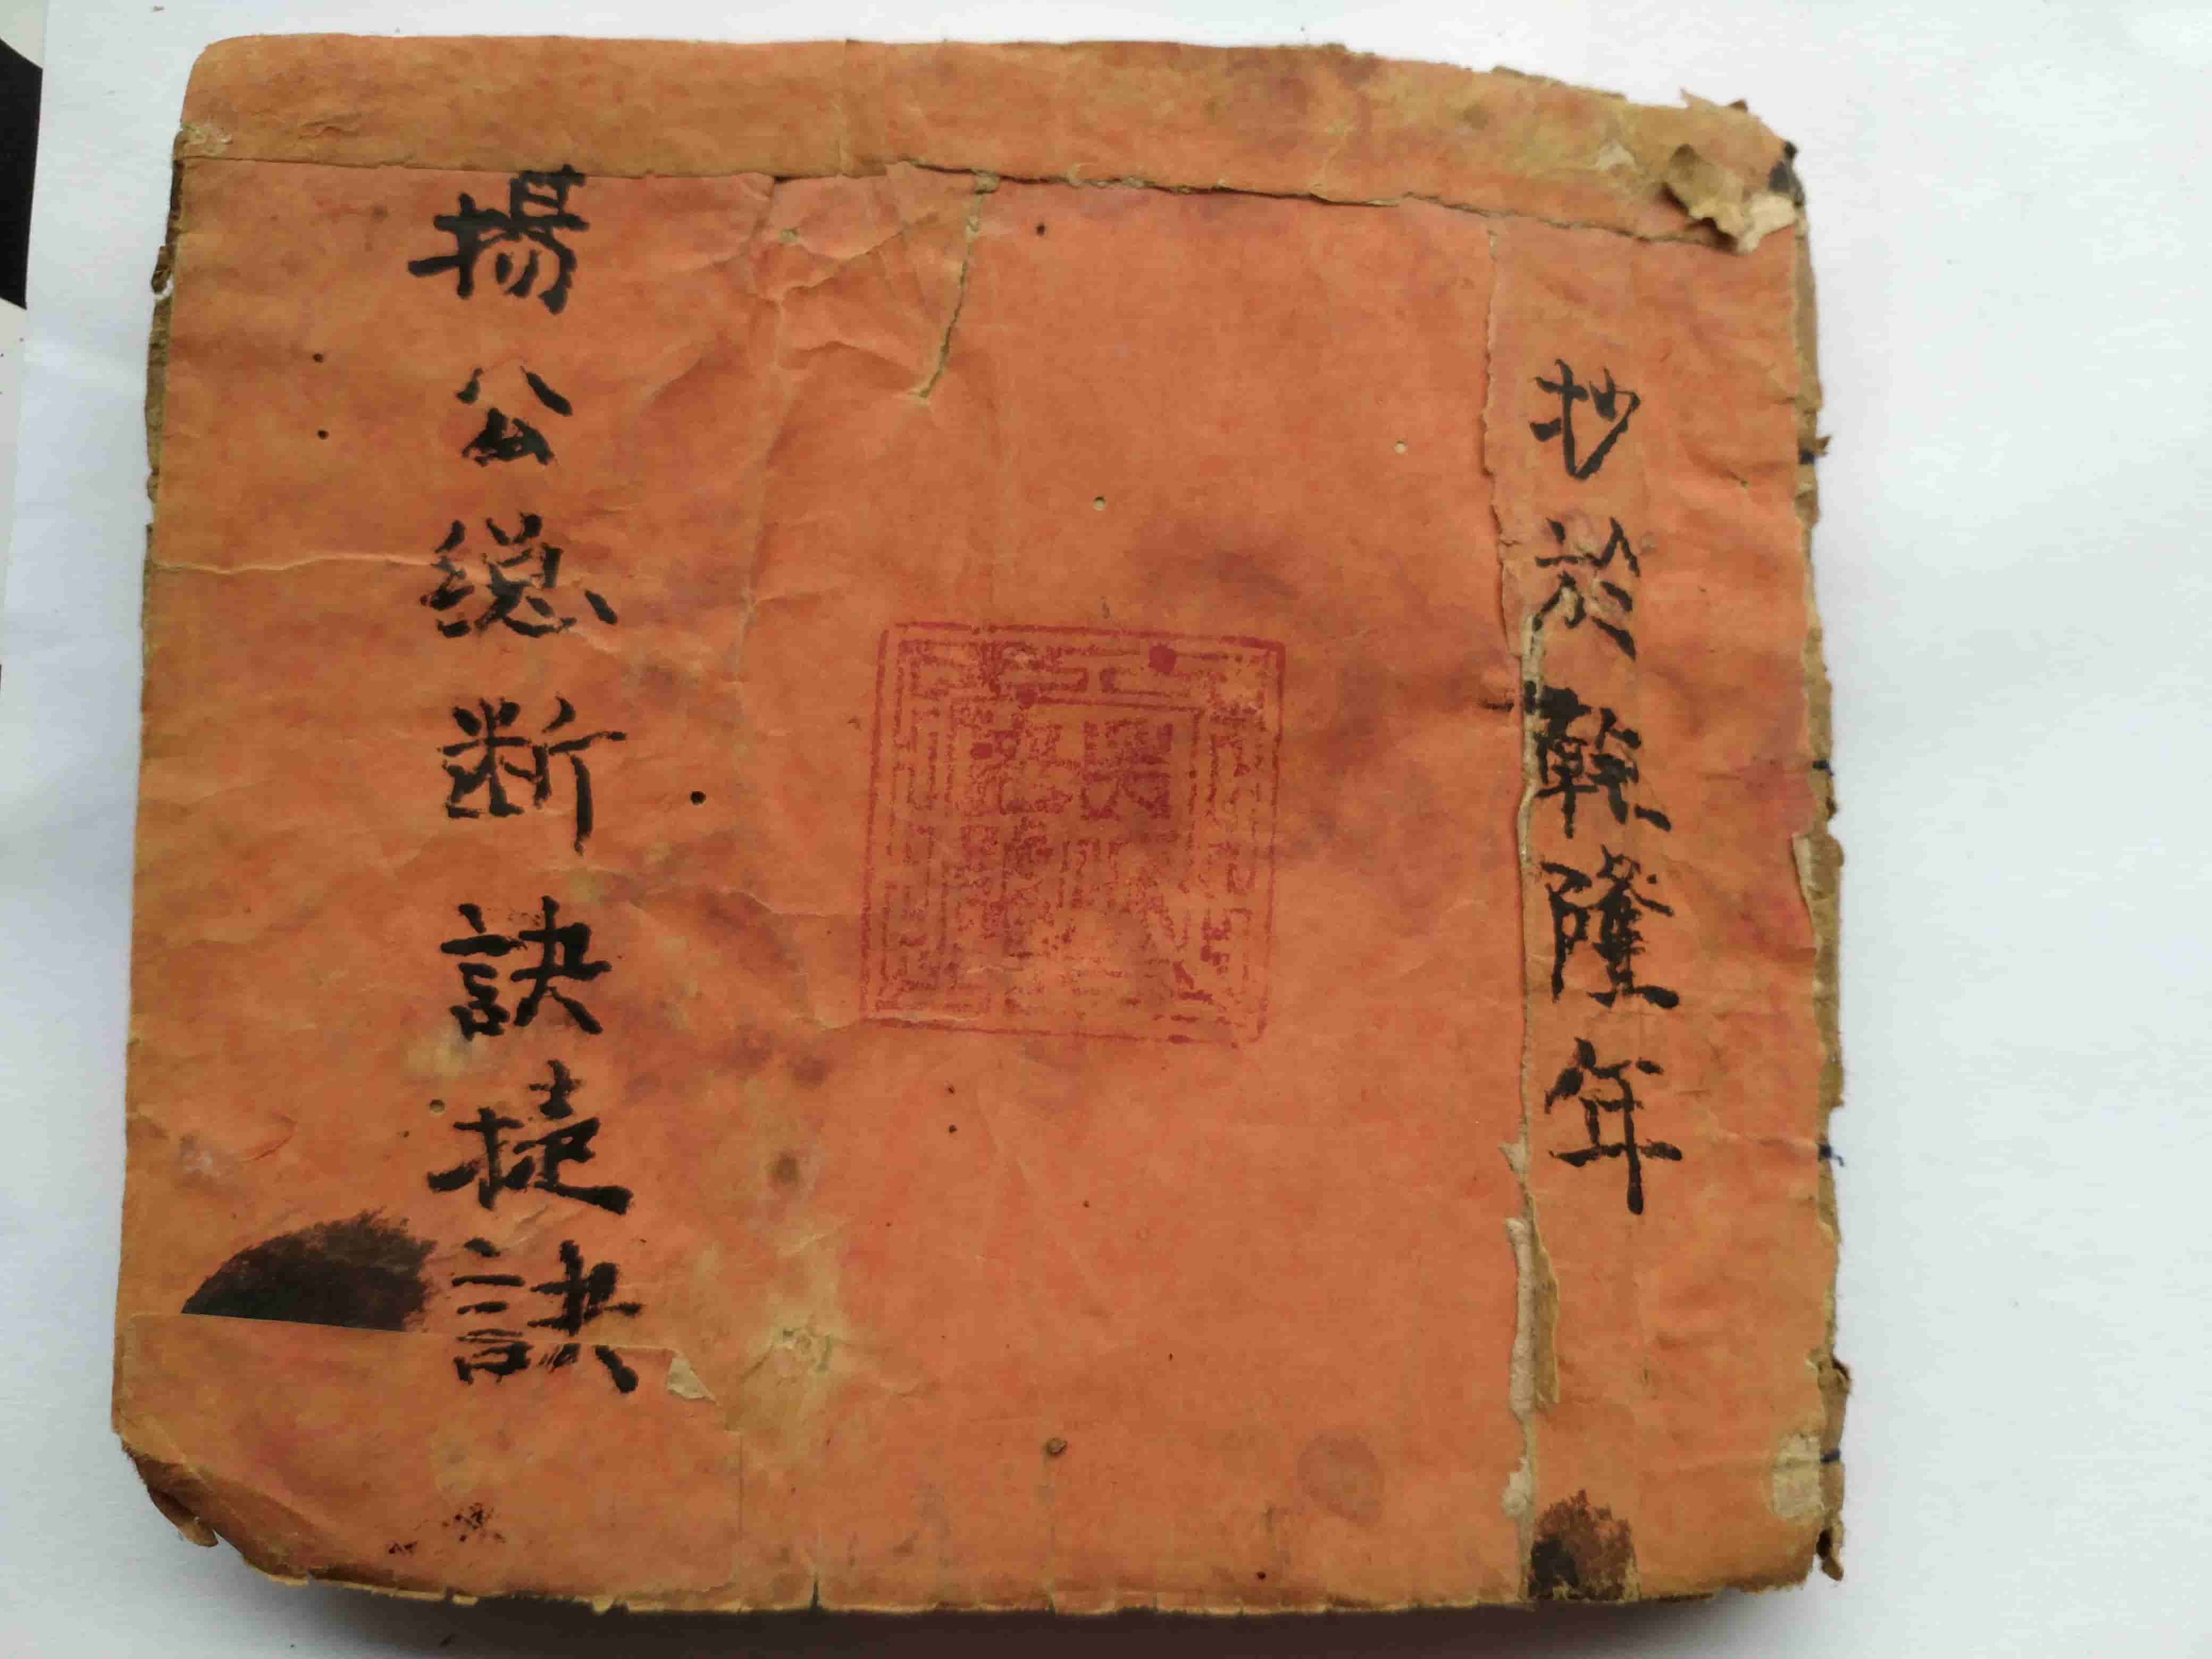 抄於乾隆年
揚公総断訣捷訣